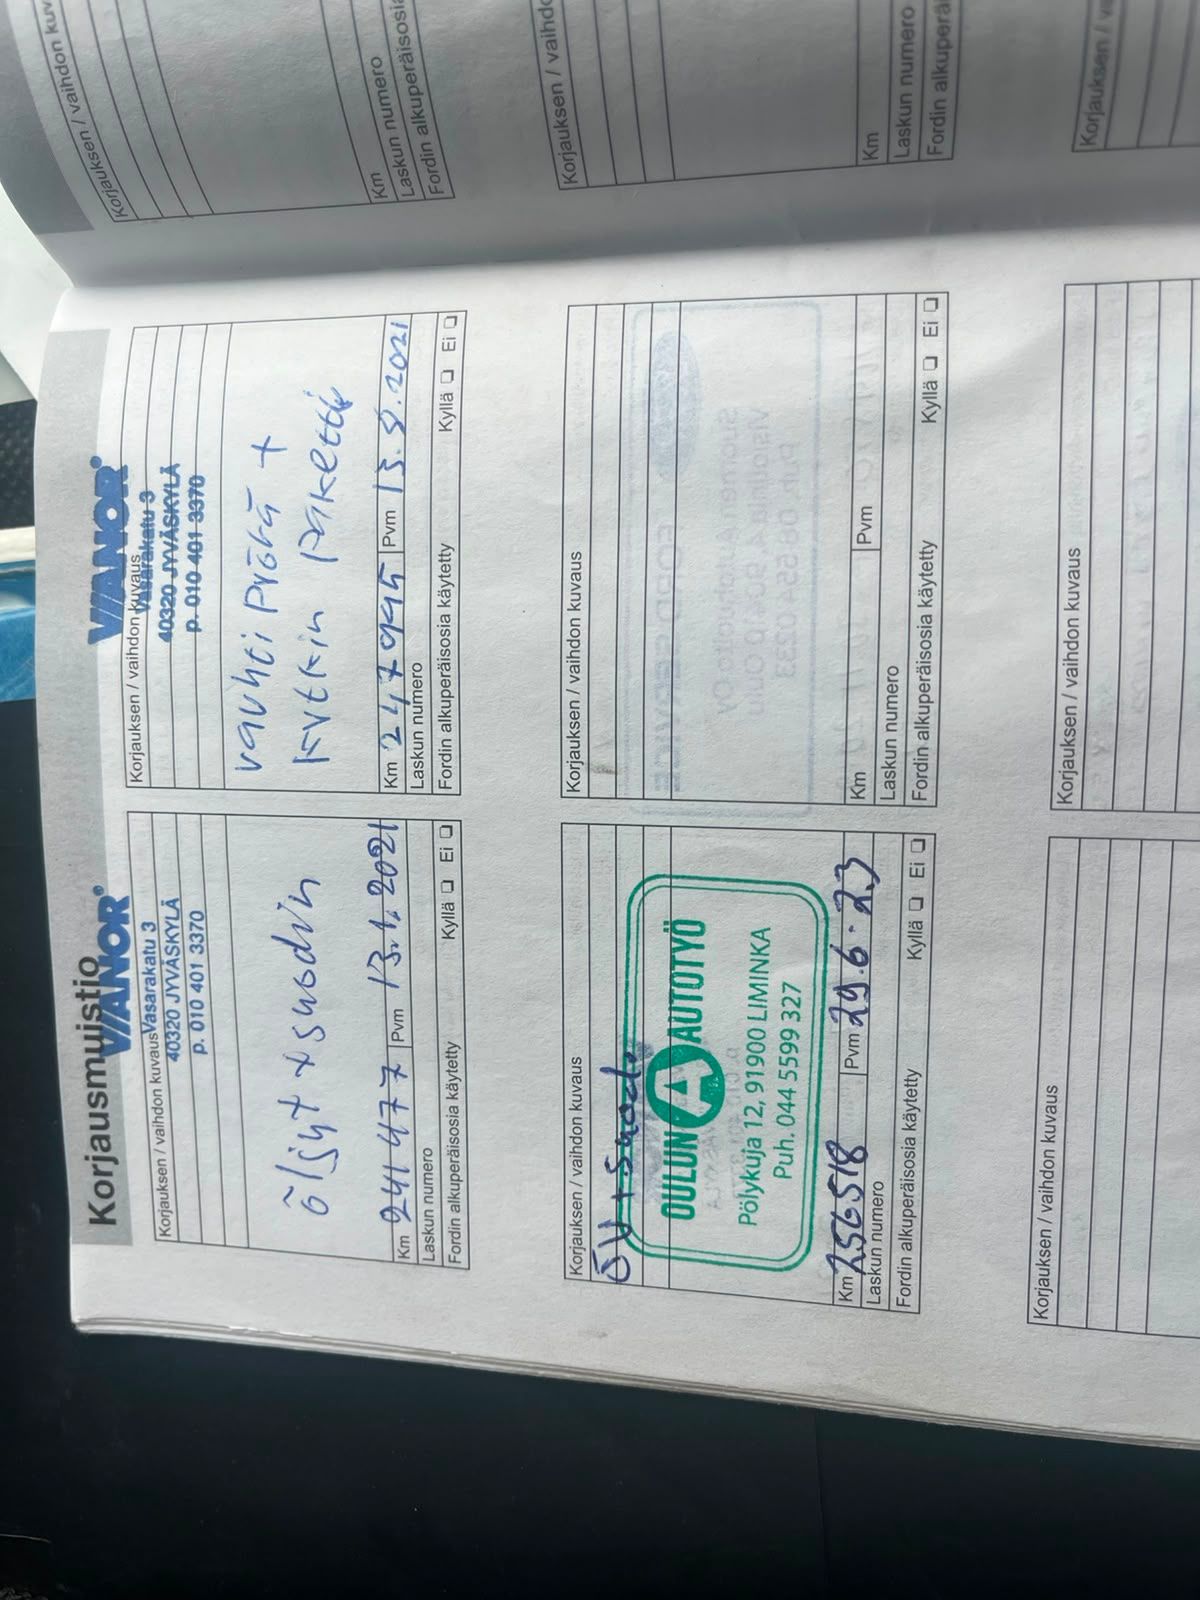 Korjausmuistio
VIANOR®
Korjauksen / vaihdon kuvaus
Vasarakatu 3
40320 JYVÄSKYLÄ
p. 010 401 3370
öljyt + suodin
Km 241 477 Pvm 13.1.2021
Laskun numero
Fordin alkuperäisosia käytetty Kyllä ❏ Ei ❏
VIANOR®
Korjauksen / vaihdon kuvaus
Vasarakatu 3
40320 JYVÄSKYLÄ
p. 010 401 3370
vauhti pyörä +
kytkin paketti
Km 247995 Pvm 13.9.2021
Laskun numero
Fordin alkuperäisosia käytetty Kyllä ❏ Ei ❏
Korjauksen / vaihdon kuvaus
OULUN A AUTOTYÖ
Pölykuja 12, 91900 LIMINKA
Puh. 044 5599 327
Km 256518 Pvm 29.6.23
Laskun numero
Fordin alkuperäisosia käytetty Kyllä ❏ Ei ❏
Korjauksen / vaihdon kuvaus
Km Pvm
Laskun numero
Fordin alkuperäisosia käytetty Kyllä ❏ Ei ❏
Korjauksen / vaihdon kuvaus
Korjauksen / vaihdon kuvaus
Korjauksen / vaihdon kuv
Km
Laskun numero
Fordin alkuperäisosia
Korjauksen / vaihdo
Km
Laskun numero
Fordin alkuperäi
Korjauksen / va